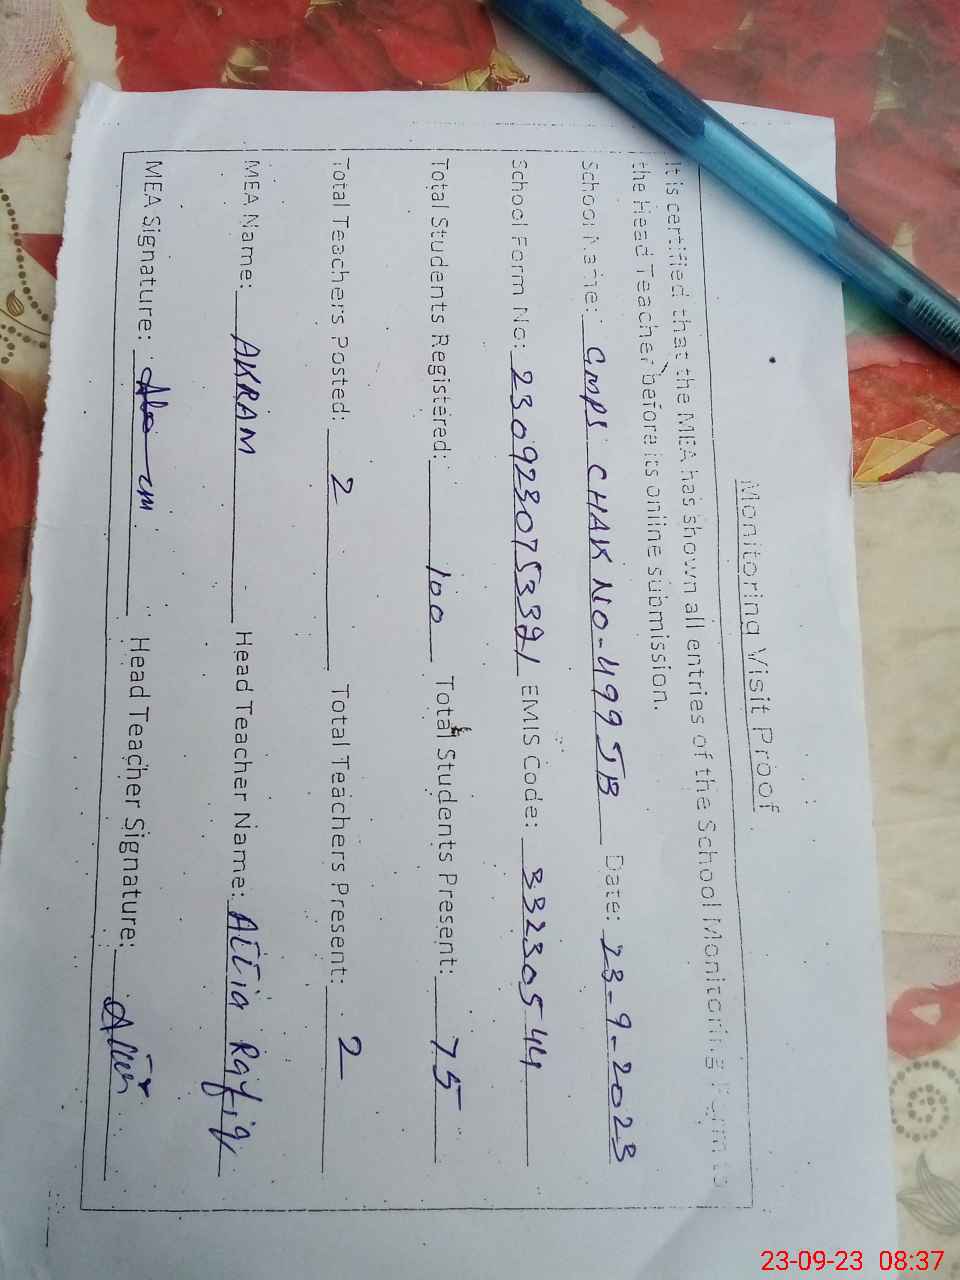 Monitoring Visit Proof
It is certified that the MEA has shown all entries of the School Monitoring Form to
the Head Teacher before its online submission.
School Name: GMPS CHAK NO-499 JB Date: 23-9-2023
School Form No: EMIS Code: 33230544
Total Students Registered: 100 Total Students Present: 75
Total Teachers Posted: 2 Total Teachers Present: 2
MEA Name: AKRAM Head Teacher Name: Rafiq
MEA Signature: Head Teacher Signature:
23-09-23 08:37